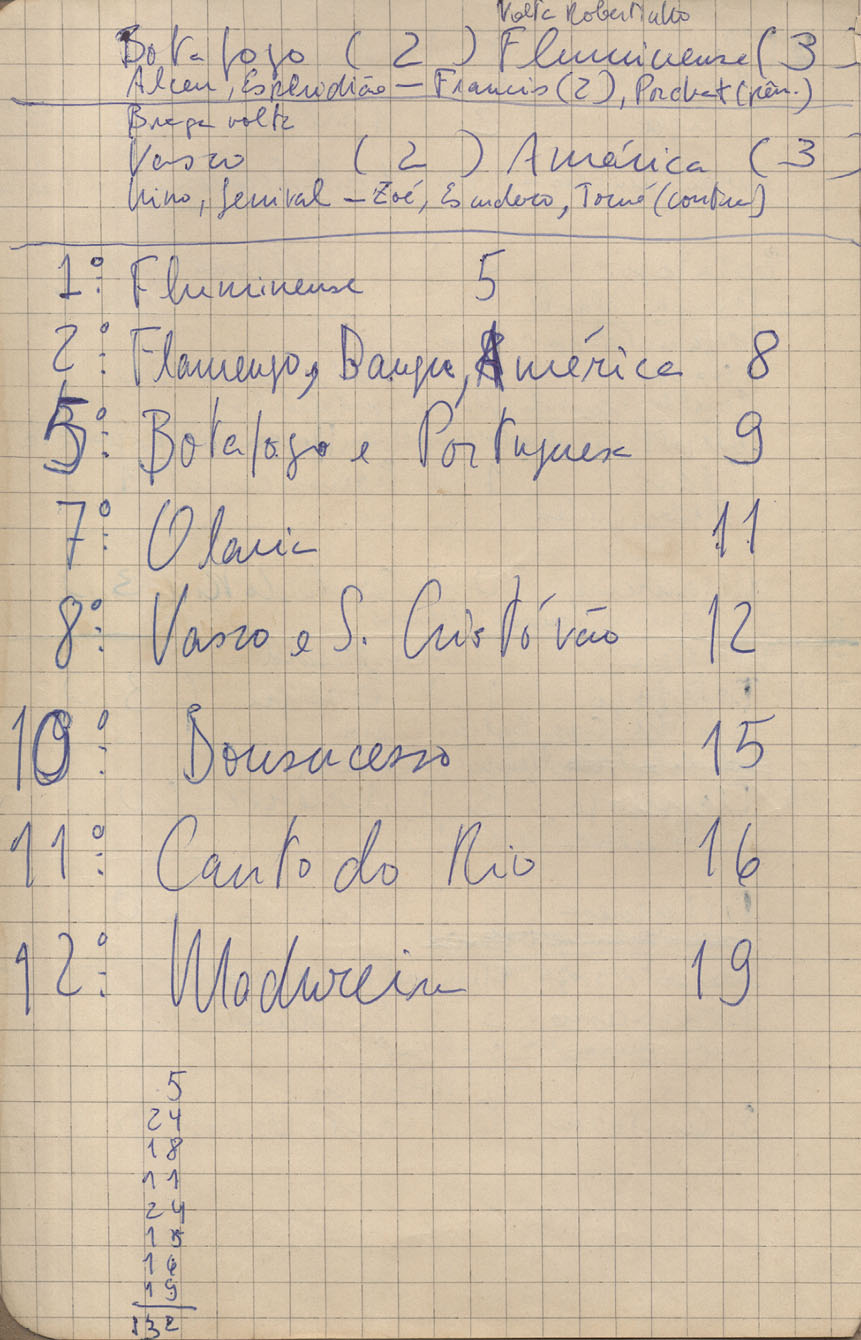 Volta Robertinho
Botafogo ( 2 ) Fluminense ( 3 )
Alceu, Esperidião — Francis (2), Porchat (pên.)
Braga volta
Vasco ( 2 ) América ( 3 )
Nino, Genival — Zoé, Escudero, Tomé (contra)
1º: Fluminense 5
2º: Flamengo, Bangu, América 8
5º: Botafogo e Portuguesa 9
7º: Olaria 11
8º: Vasco e S. Cristóvão 12
10º: Bonsucesso 15
11º: Canto do Rio 16
12º: Madureira 19
5
24
18
11
24
15
16
19
132